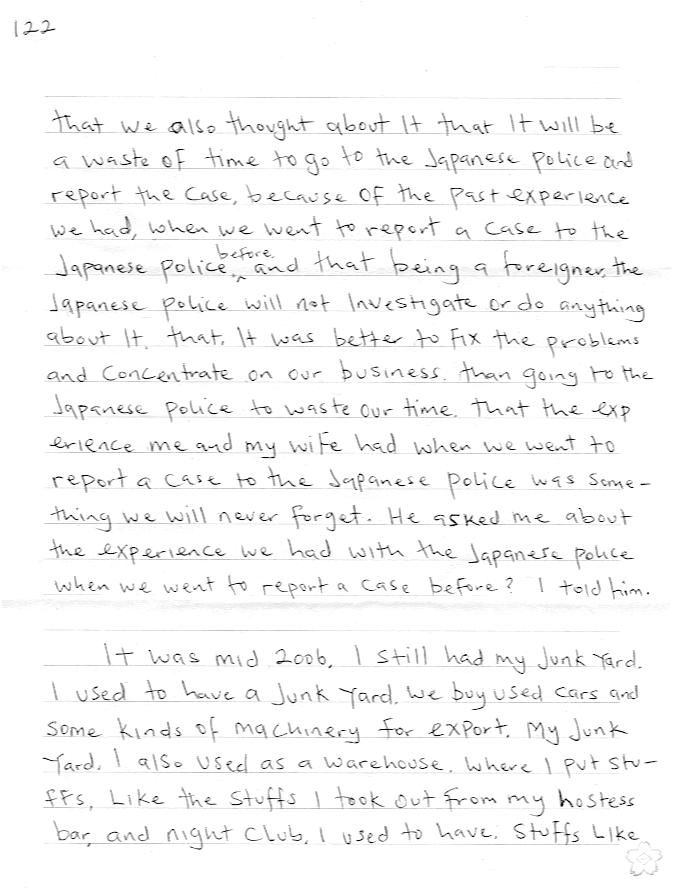 122
that we also thought about It that It will be
a waste of time to go to the Japanese police and
report the case, because of the past experience
we had, when we went to report a case to the
before.
Japanese police, and that being a foreigner, the
Japanese police will not Investigate or do anything
about It. that, It was better to fix the problems
and concentrate on our business. than going to the
Japanese police to waste our time. That the exp
erience me and my wife had when we went to
report a case to the Japanese police was some-
thing we will never forget. He asked me about
the experience we had with the Japanese police
when we went to report a case before? I told him.
It was mid 2006, I still had my Junk Yard.
I used to have a Junk Yard. We buy used cars and
some kinds of machinery for export. My Junk
Yard. I also used as a warehouse. Where I put stu-
ffs, Like the stuffs I took out from my hostess
bar, and night club. I used to have. Stuffs Like